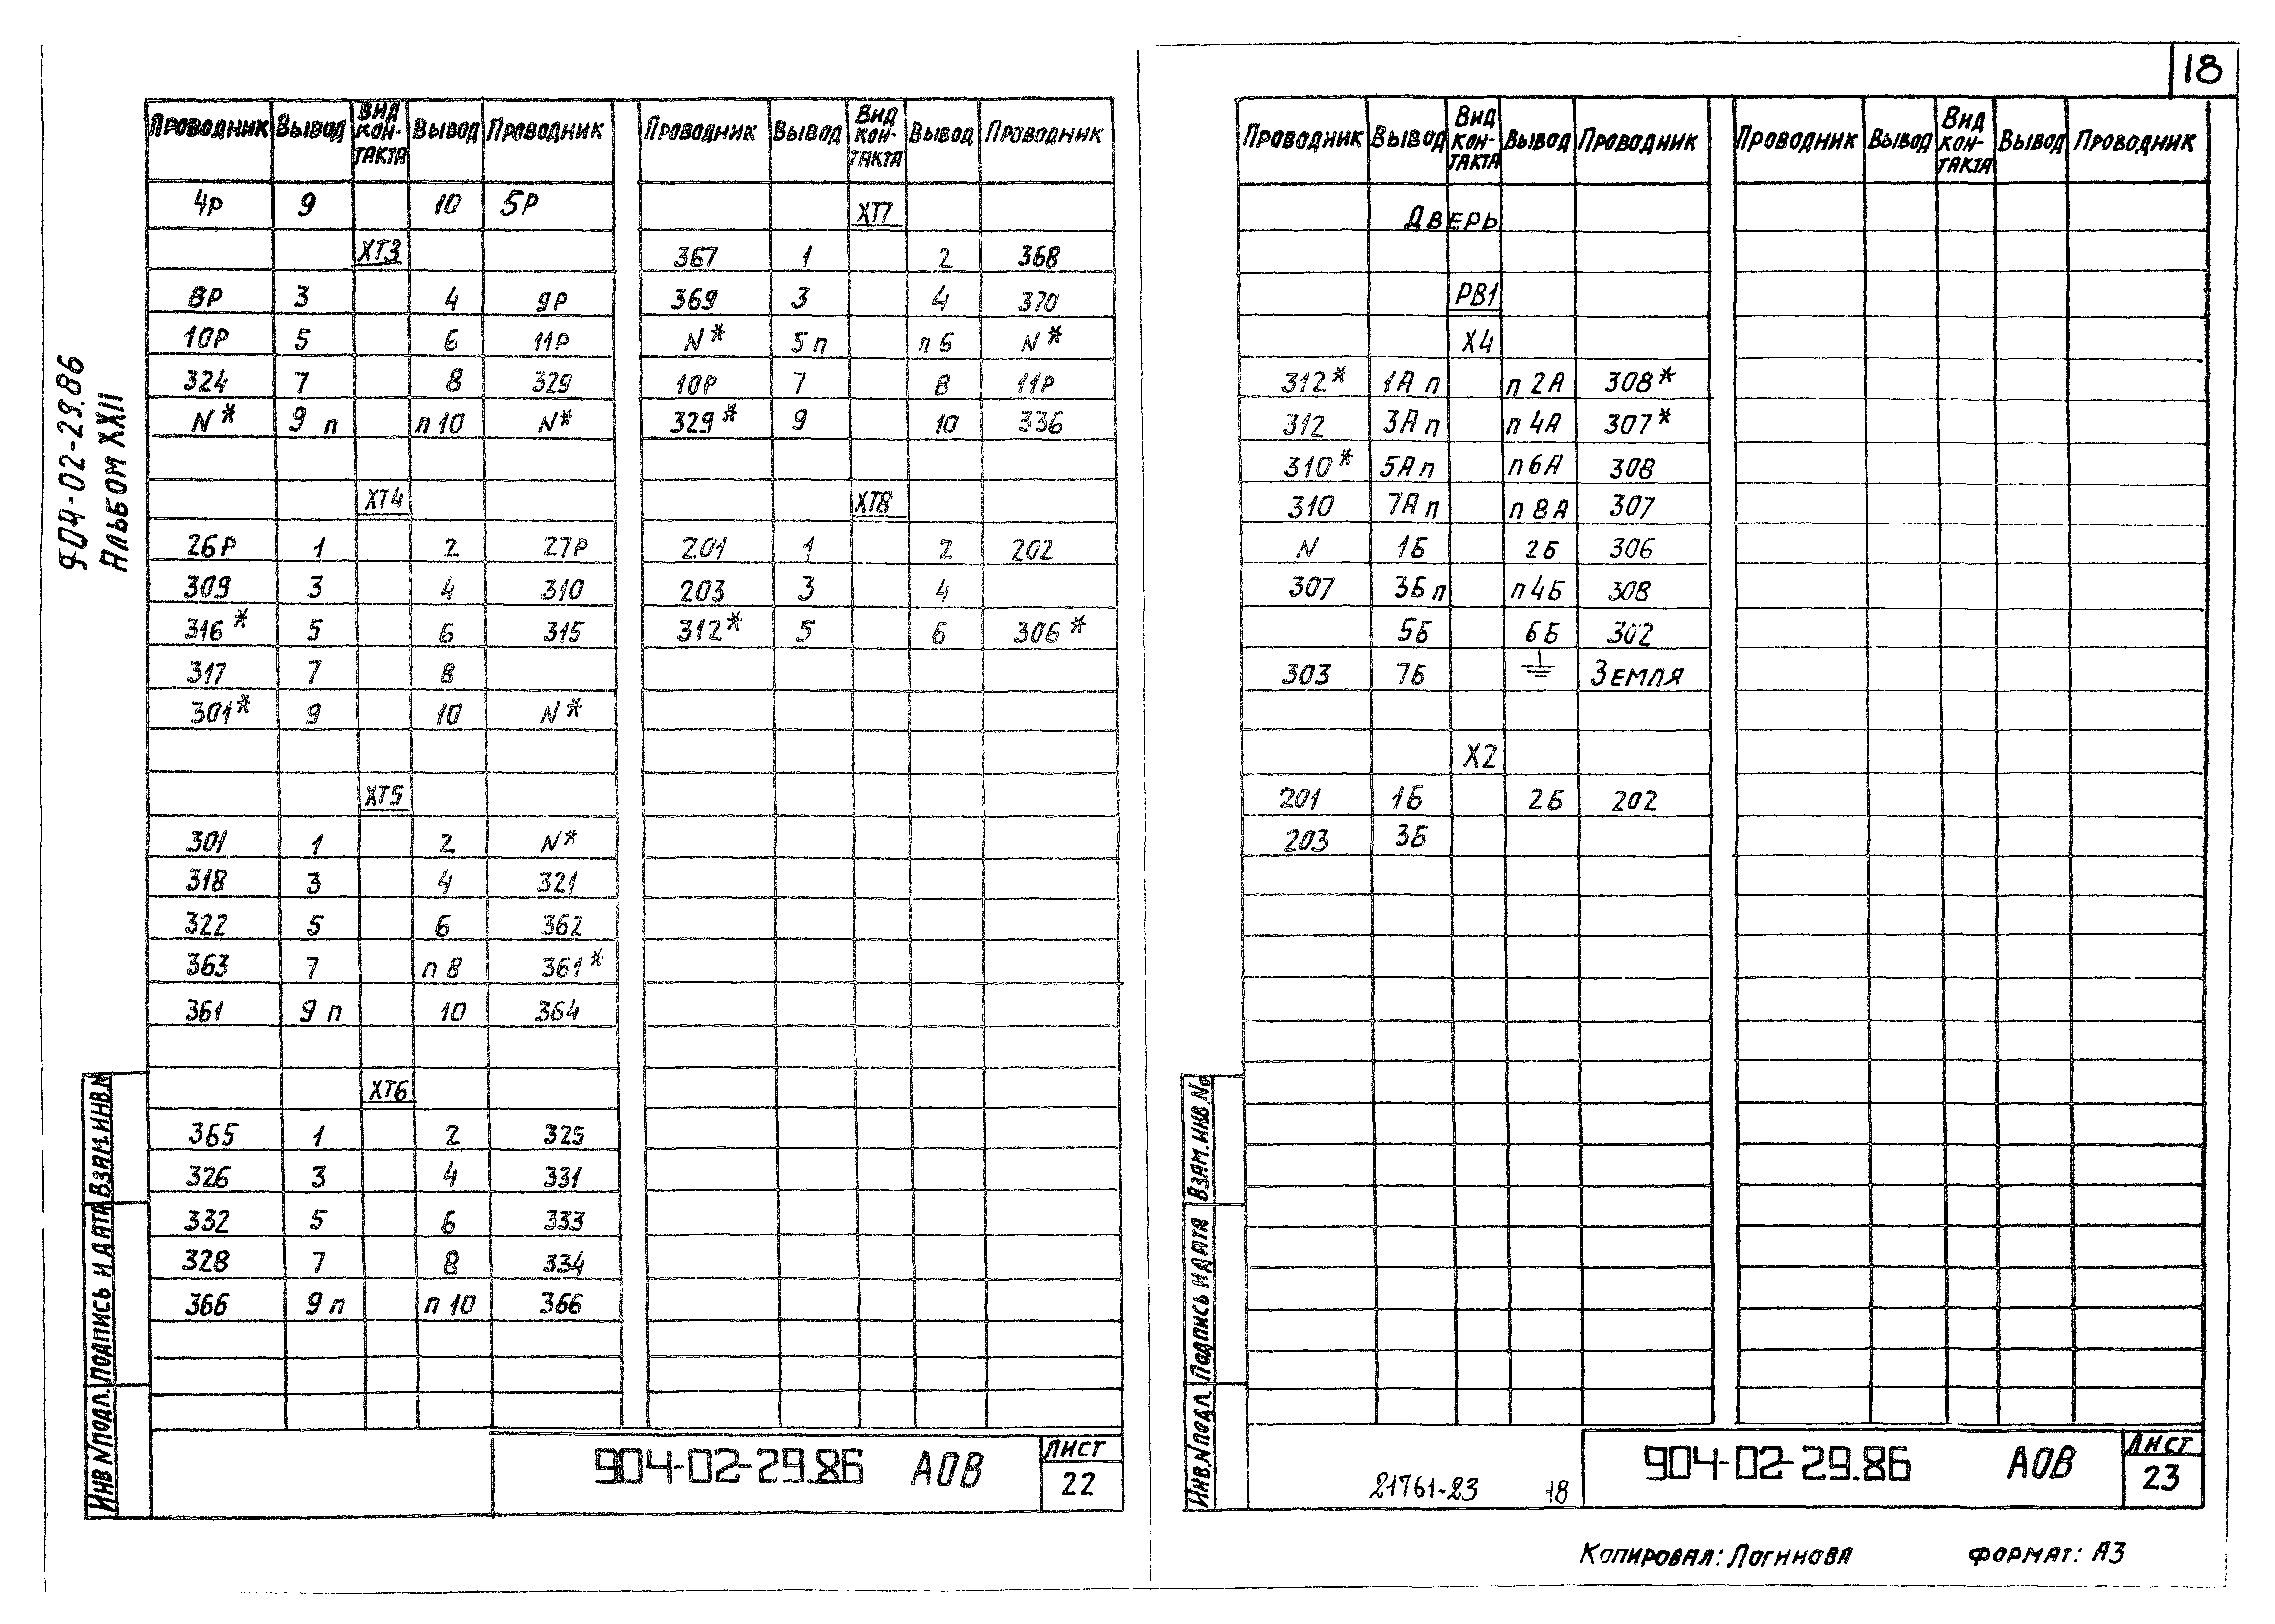 18
904-02-29.86
Альбом XXII
Проводник Вывод Вид кон-такта Вывод Проводник
4Р 9 10 5Р
ХТ3
8Р 3 4 9Р
10Р 5 6 11Р
324 7 8 329
N* 9 п п 10 N*
ХТ4
26Р 1 2 27Р
309 3 4 310
316* 5 6 315
317 7 8
301* 9 10 N*
ХТ5
301 1 2 N*
318 3 4 321
322 5 6 362
363 7 п 8 361*
361 9 п 10 364
ХТ6
365 1 2 325
326 3 4 331
332 5 6 333
328 7 8 334
366 9 п п 10 366
Проводник Вывод Вид кон-такта Вывод Проводник
ХТ7
367 1 2 368
369 3 4 370
N* 5 п п 6 N*
10Р 7 8 11Р
329* 9 10 336
ХТ8
201 1 2 202
203 3 4
312* 5 6 306*
Взам. инв. №
Подпись и дата
Инв № подл.
904-02-29.86 АОВ
Лист
22
Проводник Вывод Вид кон-такта Вывод Проводник
Дверь
РВ1
Х4
312* 1А п п 2А 308*
312 3А п п 4А 307*
310* 5А п п 6А 308
310 7А п п 8А 307
N 1Б 2Б 306
307 3Б п п 4Б 308
5Б 6Б 302
303 7Б Земля
Х2
201 1Б 2Б 202
203 3Б
Проводник Вывод Вид кон-такта Вывод Проводник
Взам. инв. №
Подпись и дата
Инв. № подл.
21761-23 18
904-02-29.86 АОВ
Лист
23
Копировал: Логинова Формат: А3